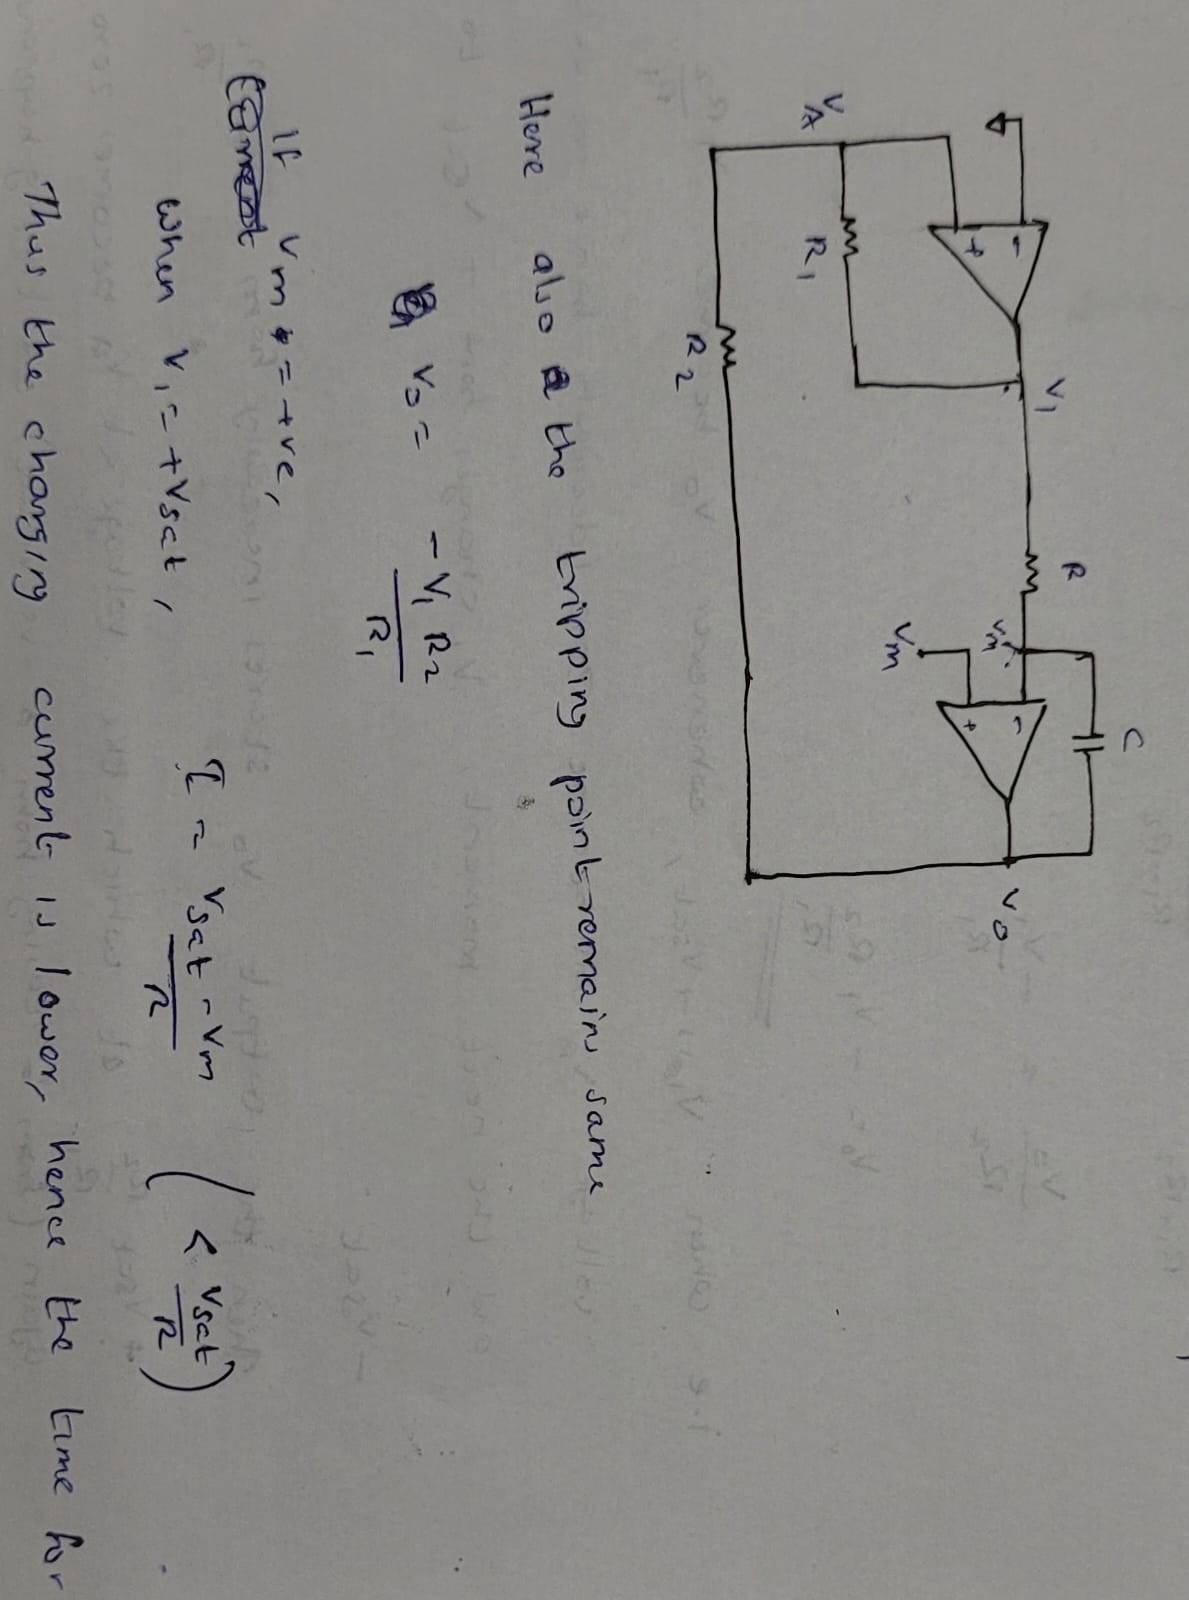 C
R
V1
-
+
Vm
-
+
Vm
Vo
VA
R1
R2
Here also the tripping point remains same
Vo = - V1 R2 / R1
If Vm = +ve,
Current
when V1 = +Vsat, I = Vsat - Vm / R ( < Vsat / R )
Thus the charging current is lower, hence the time for